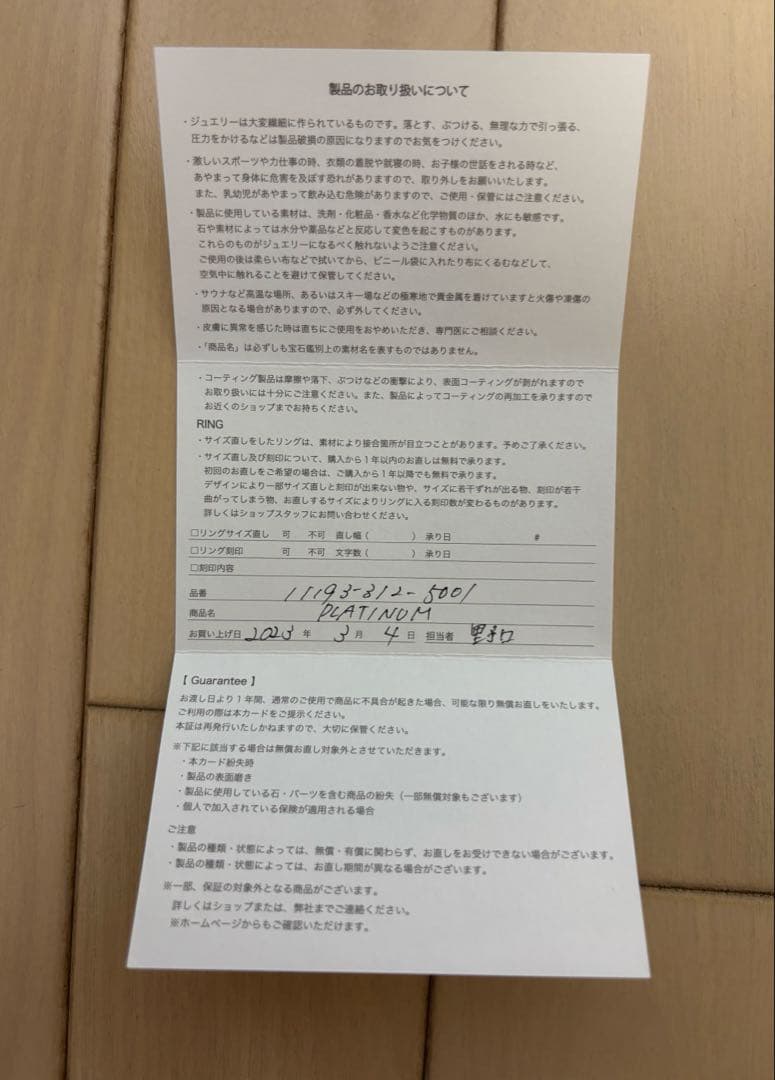 製品のお取り扱いについて
・ジュエリーは大変繊細に作られているものです。落とす、ぶつける、無理な力で引っ張る、
圧力をかけるなどは製品破損の原因になりますのでお気をつけください。
・激しいスポーツや力仕事の時、衣類の着脱や就寝の時、お子様の世話をされる時など、
あやまって身体に危害を及ぼす恐れがありますので、取り外しをお願いいたします。
また、乳幼児があやまって飲み込む危険がありますので、ご使用・保管にはご注意ください。
・製品に使用している素材は、洗剤・化粧品・香水など化学物質のほか、水にも敏感です。
石や素材によっては水分や薬品などと反応して変色を起こすものがあります。
これらのものがジュエリーになるべく触れないようご注意ください。
ご使用の後は柔らい布などで拭いてから、ビニール袋に入れたり布にくるむなどして、
空気中に触れることを避けて保管してください。
・サウナなど高温な場所、あるいはスキー場などの極寒地で貴金属を着けていますと火傷や凍傷の
原因となる場合がありますので、必ず外してください。
・皮膚に異常を感じた時は直ちにご使用をおやめいただき、専門医にご相談ください。
・「商品名」は必ずしも宝石鑑別上の素材名を表すものではありません。
・コーティング製品は摩擦や落下、ぶつけなどの衝撃により、表面コーティングが剥がれますので
お取り扱いには十分にご注意ください。また、製品によってコーティングの再加工を承りますので
お近くのショップまでお持ちください。
RING
・サイズ直しをしたリングは、素材により接合箇所が目立つことがあります。予めご了承ください。
・サイズ直し及び刻印について、購入から1年以内のお直しは無料で承ります。
初回のお直しをご希望の場合は、ご購入から1年以降でも無料で承ります。
デザインにより一部サイズ直しと刻印が出来ない物や、サイズに若干ずれが出る物、刻印が若干
曲がってしまう物、お直しするサイズによりリングに入る刻印数が変わるものがあります。
詳しくはショップスタッフにお問い合わせください。
□リングサイズ直し 可 不可 直し幅( ) 承り日 #
□リング刻印 可 不可 文字数( ) 承り日
□刻印内容
品番 11193-312-5001
商品名 PLATINUM
お買い上げ日 2023 年 3 月 4 日 担当者 野口
【 Guarantee 】
お渡し日より1年間、通常のご使用で商品に不具合が起きた場合、可能な限り無償お直しをいたします。
ご利用の際は本カードをご提示ください。
本証は再発行いたしかねますので、大切に保管ください。
※下記に該当する場合は無償お直し対象外とさせていただきます。
・本カード紛失時
・製品の表面磨き
・製品に使用している石・パーツを含む商品の紛失(一部無償対象もございます)
・個人で加入されている保険が適用される場合
ご注意
・製品の種類・状態によっては、無償・有償に関わらず、お直しをお受けできない場合がございます。
・製品の種類・状態によっては、お直し期間が異なる場合がございます。
※一部、保証の対象外となる商品がございます。
詳しくはショップまたは、弊社までご連絡ください。
※ホームページからもご確認いただけます。